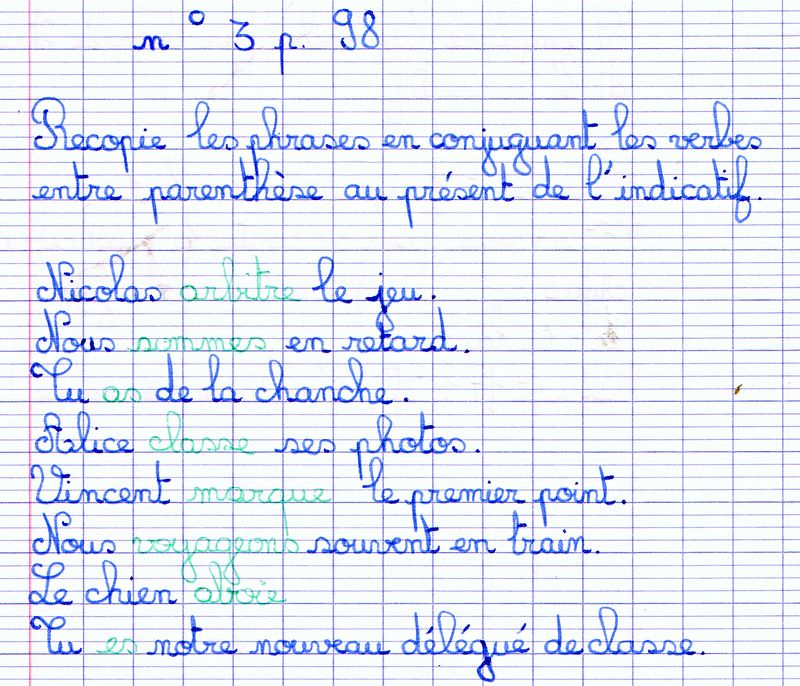 n° 3 p. 98
Recopie les phrases en conjuguant les verbes
entre parenthèse au présent de l'indicatif.
Nicolas arbitre le jeu.
Nous sommes en retard.
Tu as de la chanche.
Alice classe ses photos.
Vincent marque le premier point.
Nous voyageons souvent en train.
Le chien aboie
Tu es notre nouveau délégué de classe.